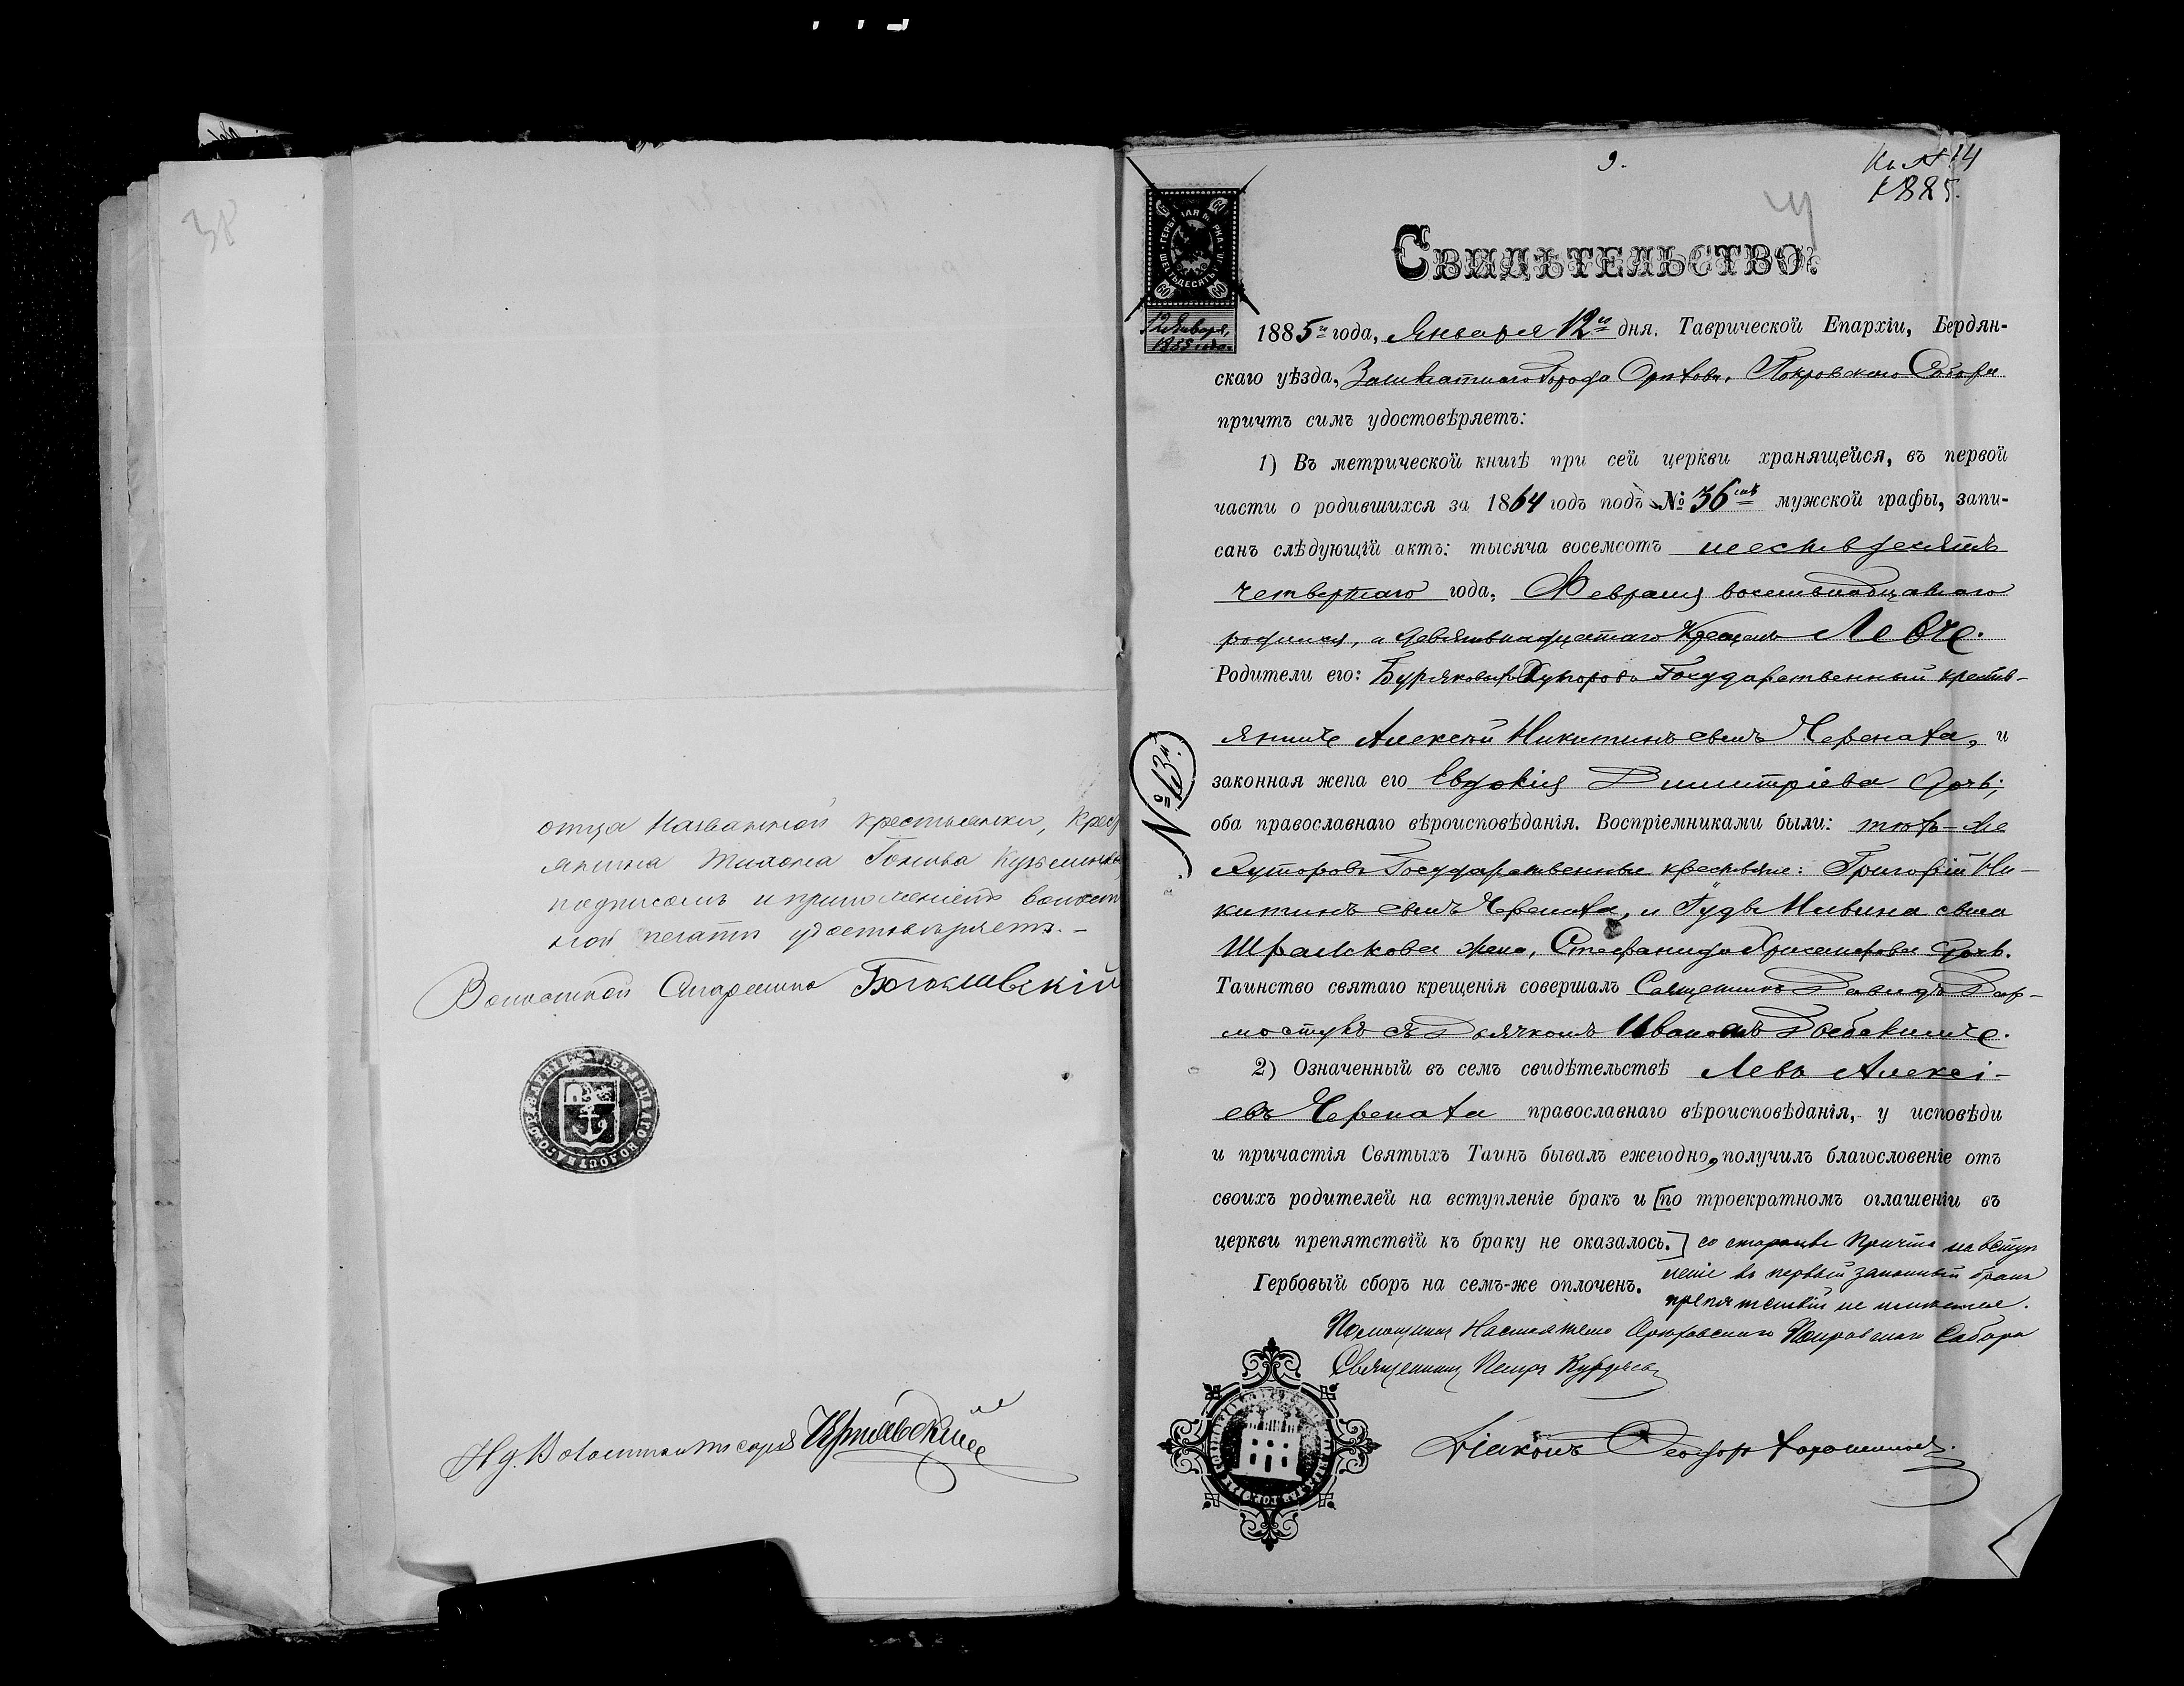 38
отца названной крестьянки, крес
янина
подписомъ и приложеніемъ волост
ной печати удостовѣряетъ.—
Волостной Старшина Богаевскій
9.
Къ № 14
1885.
ГЕРБОВАЯ МАРКА
ШЕСТЬДЕСЯТЪ
60
60
12 Января
1885 года
СВИДѢТЕЛЬСТВО.
1885го года, Января 12го дня. Таврической Епархіи, Бердян-
скаго уѣзда, Заштатнаго Города Орѣхова, Покровскаго Собора
причтъ симъ удостовѣряетъ:
1) Въ метрической книгѣ при сей церкви хранящейся, въ первой
части о родившихся за 1864 годъ подъ № 36 мужской графы, запи-
санъ слѣдующій актъ: тысяча восемсотъ шестьдесятъ
четвертаго года, Февраля восемнадцатаго
родился, а девятнадцатаго крещенъ Левъ.
Родители его: Хуторовъ Государственный кресть-
янинъ Алексѣй Никитинъ сынъ Черепаха, и
законная жена его Евдокія Димитріева дочь;
оба православнаго вѣроисповѣданія. Воспріемниками были: тѣхъ-же
Хуторовъ Государственные крестьяне: Григорій Ни-
китинъ сынъ Черепаха, и сына
Шрамкова жена, Стефанида дочь.
Таинство святаго крещенія совершалъ Священникъ Давидъ Дар-
мостукъ съ Дьячкомъ Иваномъ
2) Означенный въ семъ свидѣтельствѣ Левъ Алексі-
евъ Черепаха православнаго вѣроисповѣданія, у исповѣди
и причастія Святыхъ Таинъ бывалъ ежегодно, получилъ благословеніе отъ
своихъ родителей на вступленіе бракъ и [по троекратномъ оглашеніи въ
церкви препятствій къ браку не оказалось.] со стороны Причта на вступ
леніе въ первый законный бракъ
Гербовый сборъ на семъ-же оплоченъ.
препятствій не имѣется.
Помощникъ Настоятеля Орѣховскаго Покровскаго Собора
Священникъ Петръ
Діаконъ Ѳеодоръ
№ 13й.